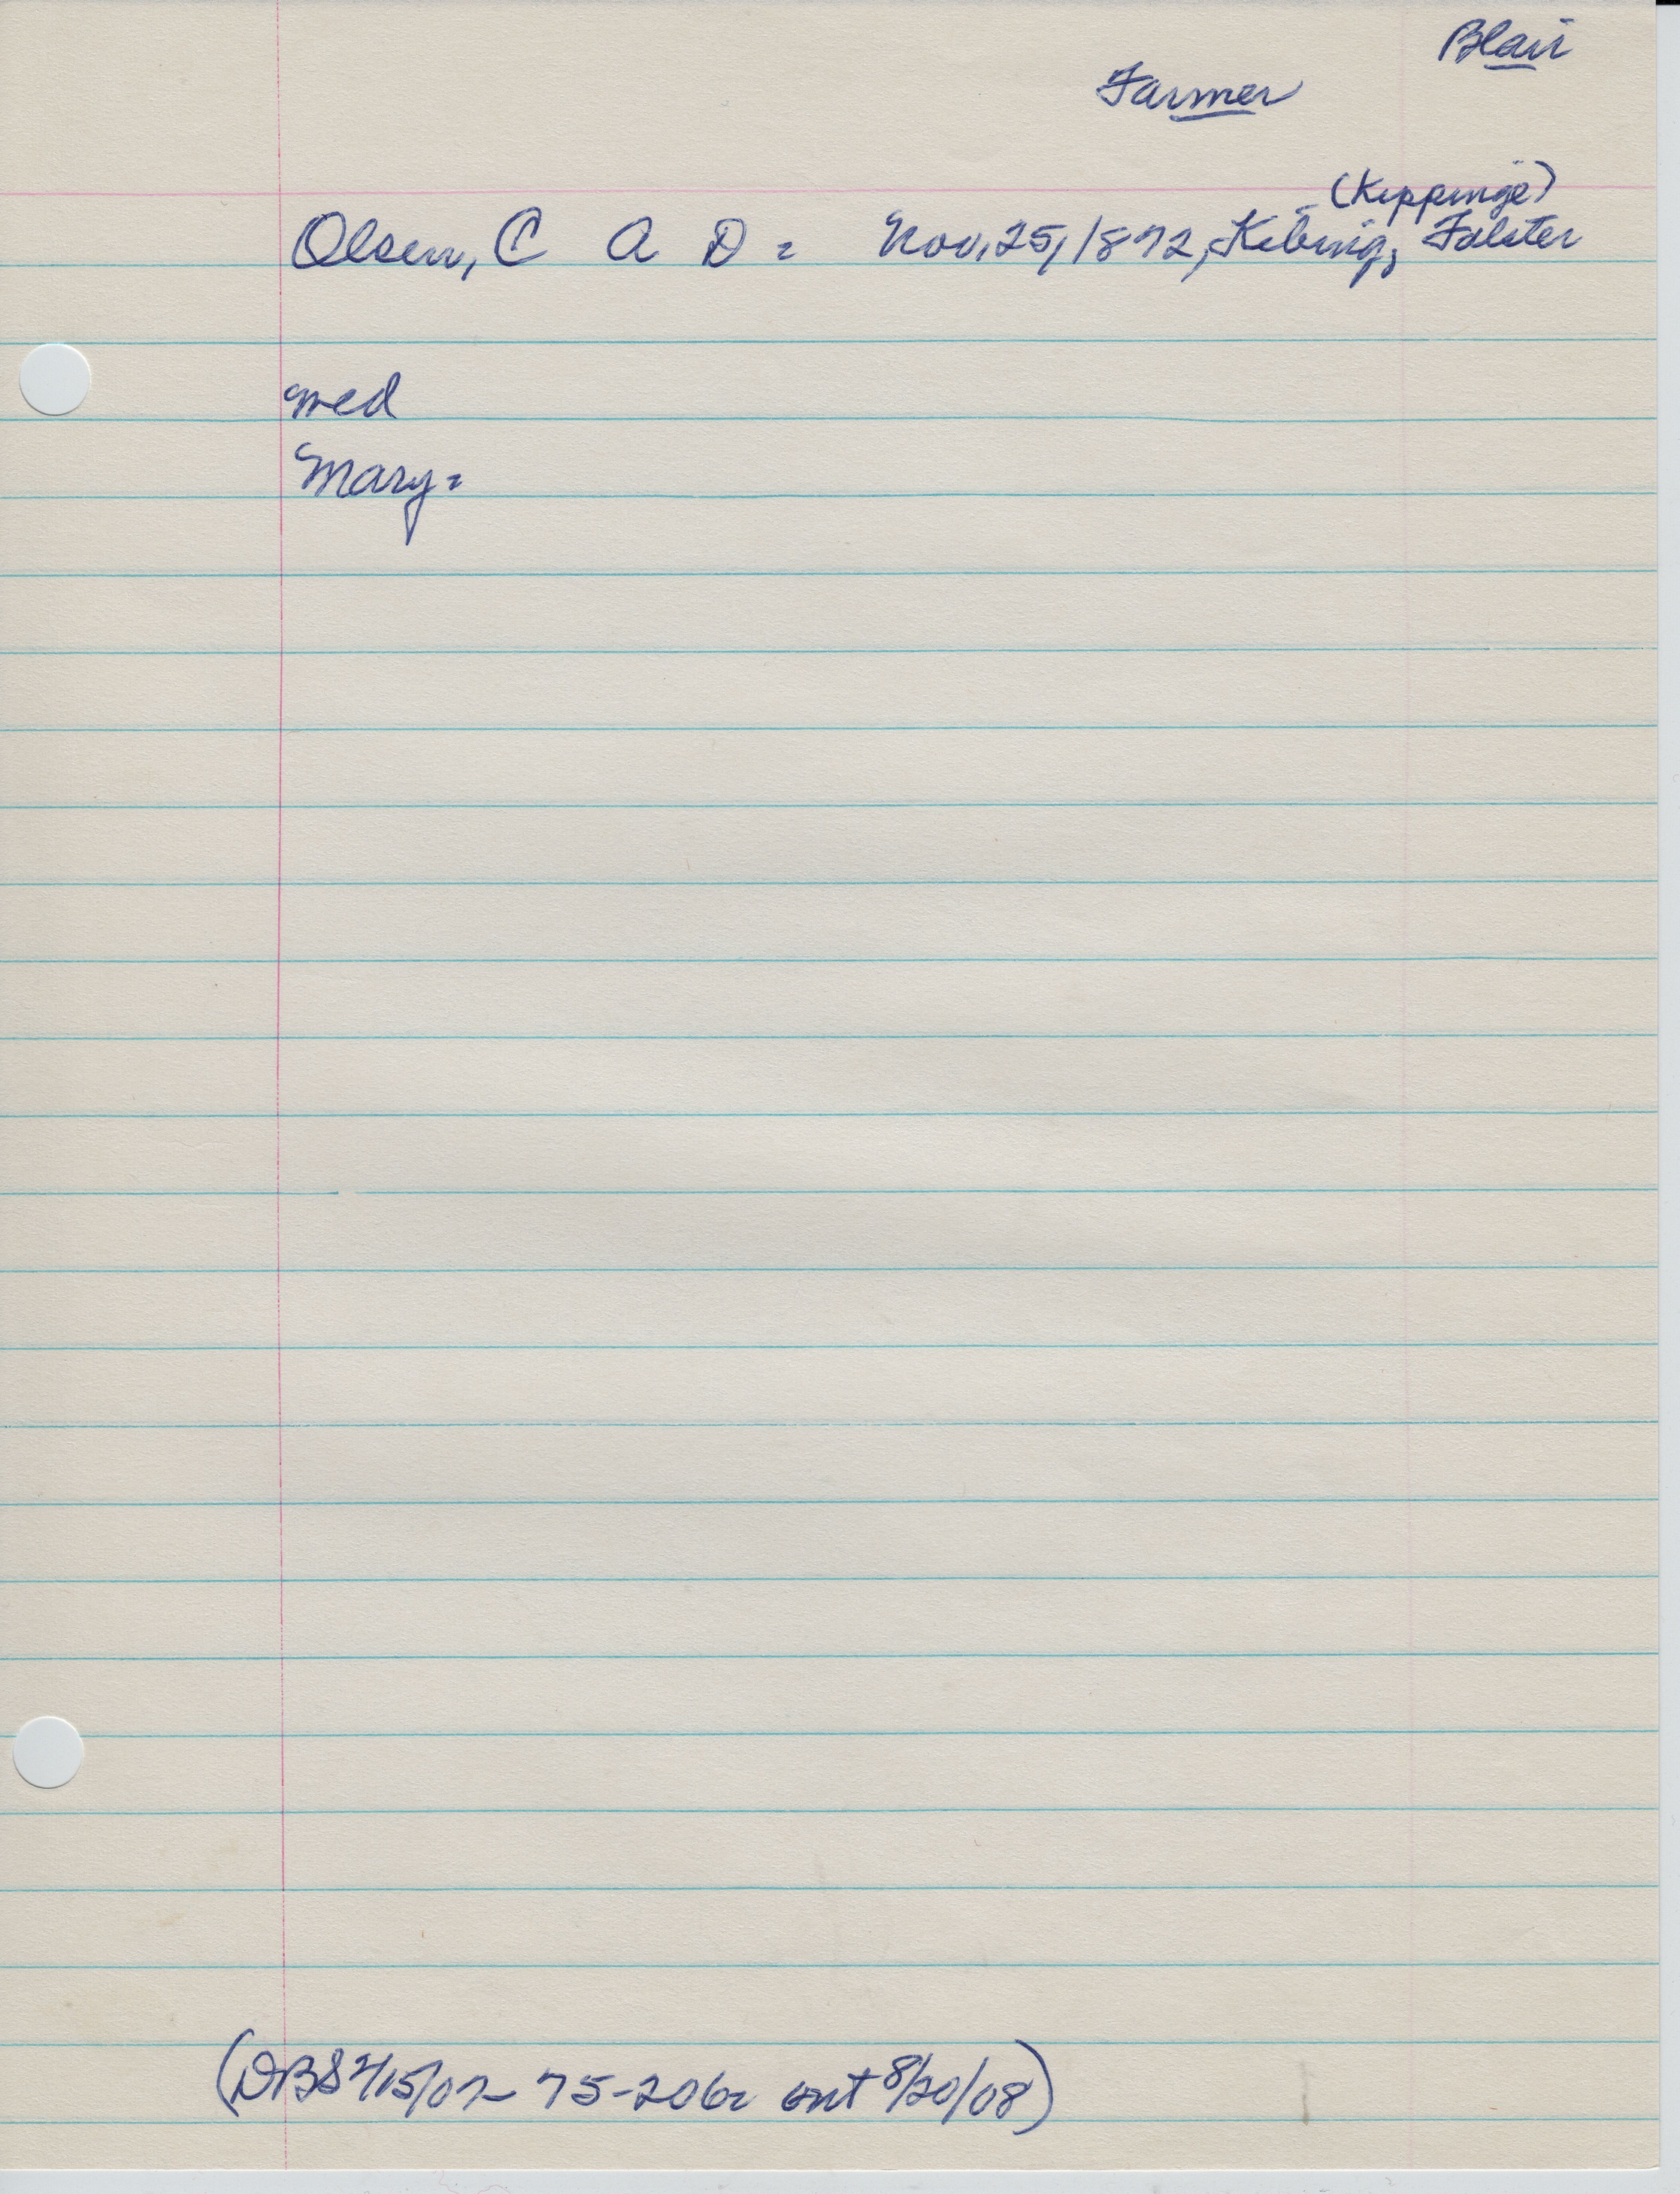 Blair
Farmer
(Kippinge)
Olsen, C A D = Nov. 25, 1872, Kibing, Falster
med
Mary =
(DBS 2/15/07 - 75-206 ent 8/20/08)